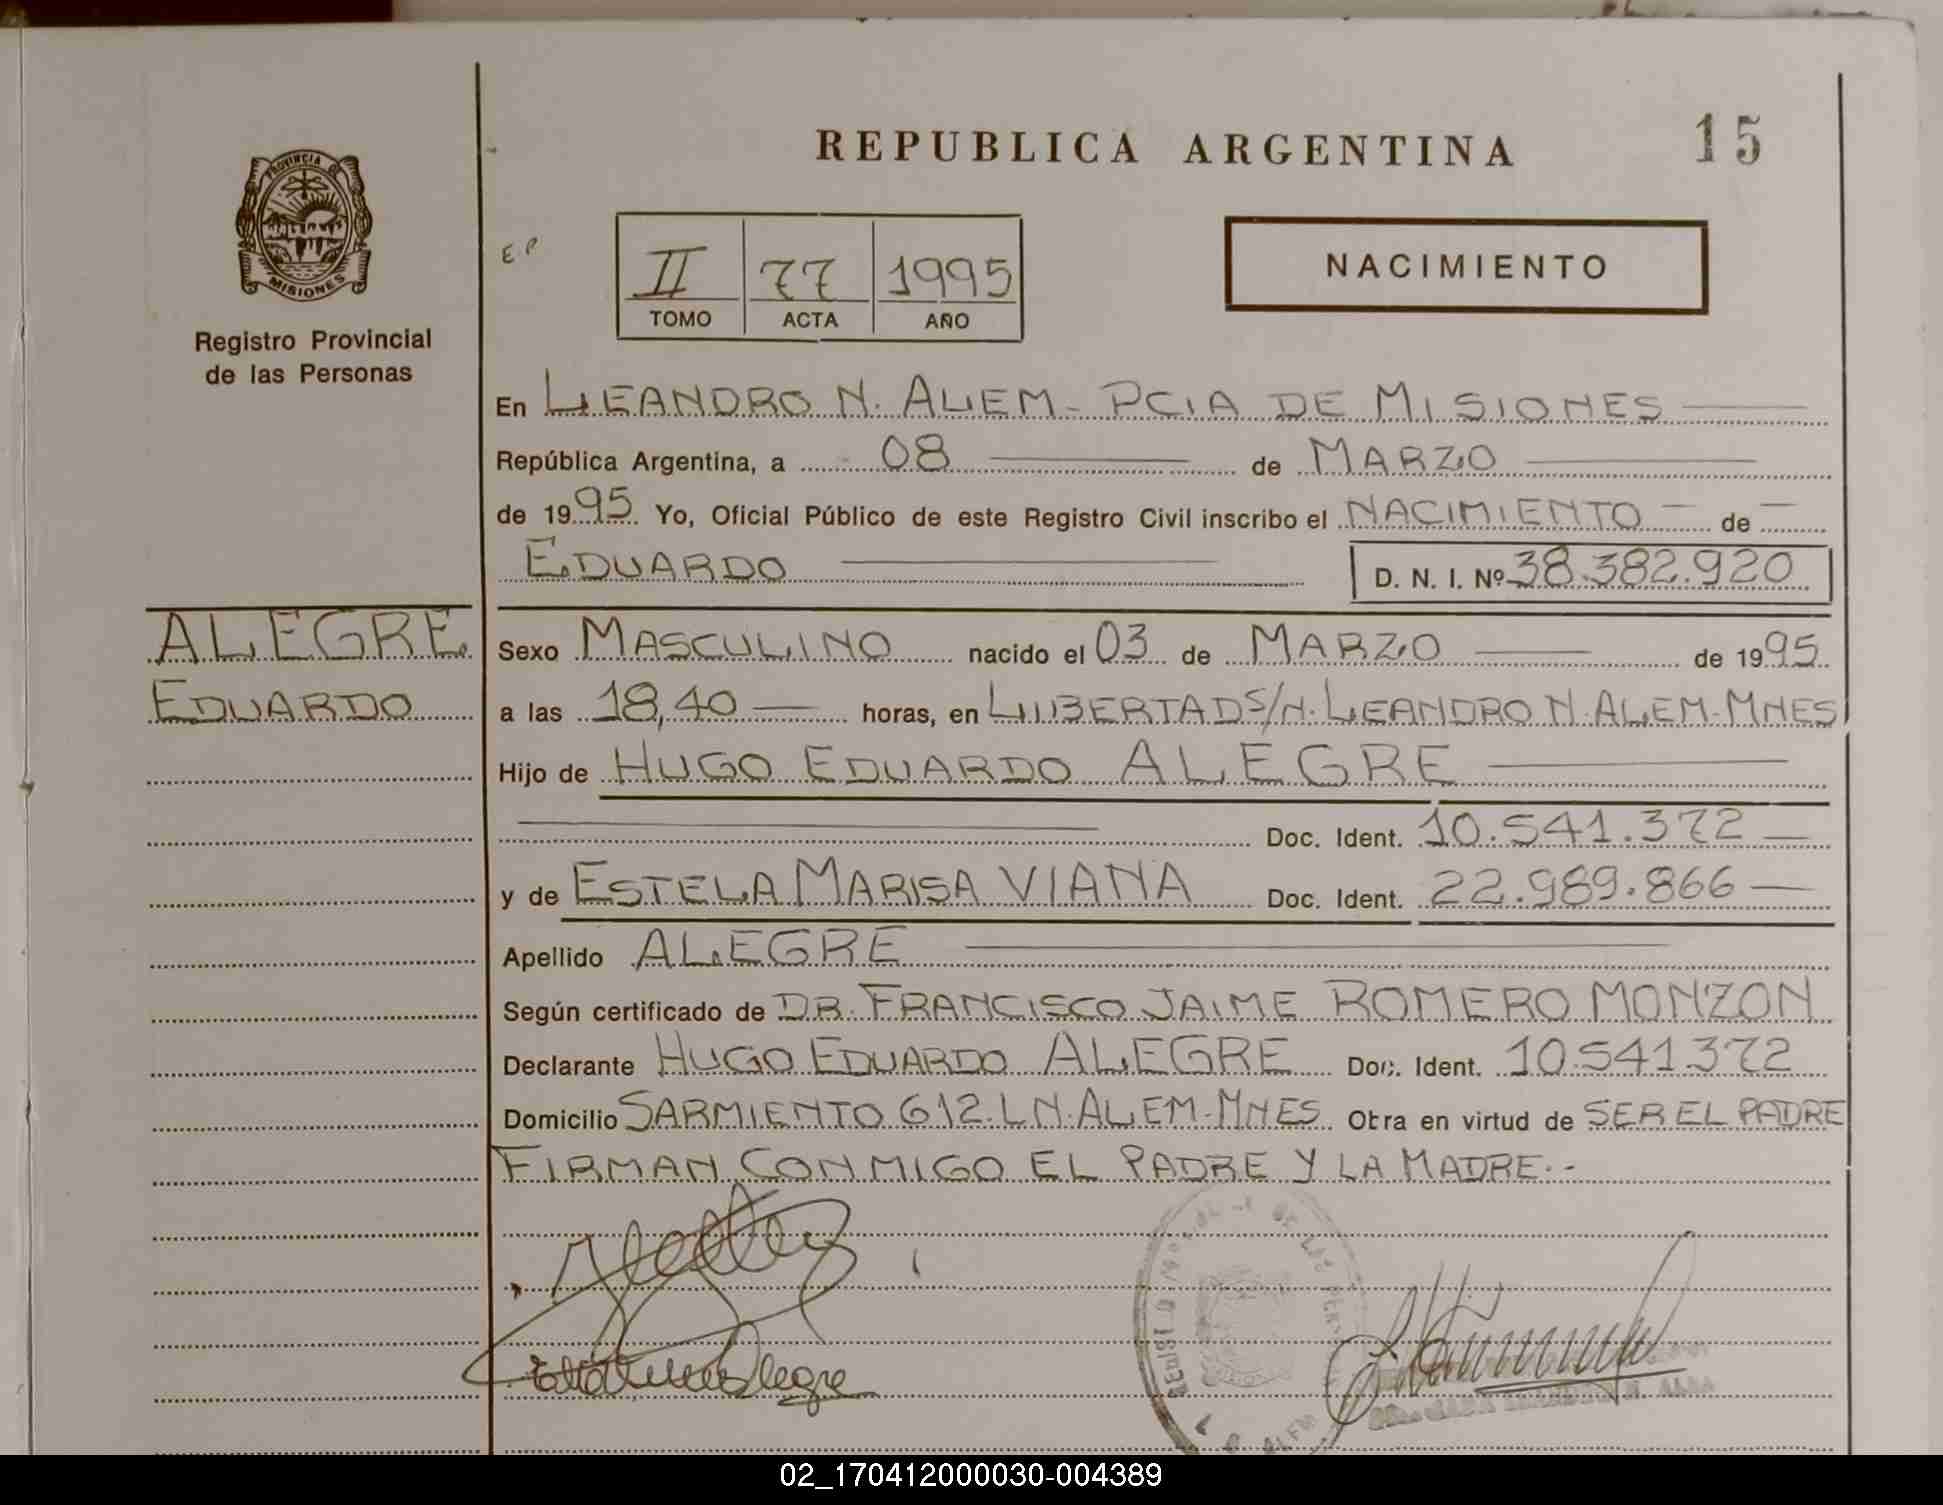 REPUBLICA ARGENTINA
15
PROVINCIA
MISIONES
Registro Provincial
de las Personas
EP
II 77 1995
TOMO ACTA AÑO
NACIMIENTO
En LEANDRO N. ALEM - PCIA DE MISIONES
República Argentina, a 08 de MARZO
de 1995 Yo, Oficial Público de este Registro Civil inscribo el NACIMIENTO de
EDUARDO D. N. I. Nº 38.382.920
ALEGRE
EDUARDO
Sexo MASCULINO nacido el 03 de MARZO de 1995
a las 18,40 horas, en LIBERTAD S/N. LEANDRO N. ALEM - MNES
Hijo de HUGO EDUARDO ALEGRE
Doc. Ident. 10.541.372
y de ESTELA MARISA VIANA Doc. Ident. 22.989.866
Apellido ALEGRE
Según certificado de DR. FRANCISCO JAIME ROMERO MONZON
Declarante HUGO EDUARDO ALEGRE Doc. Ident. 10.541372
Domicilio SARMIENTO 612. L.N. ALEM - MNES Obra en virtud de SER EL PADRE
FIRMAN CONMIGO EL PADRE Y LA MADRE.-
02_170412000030-004389